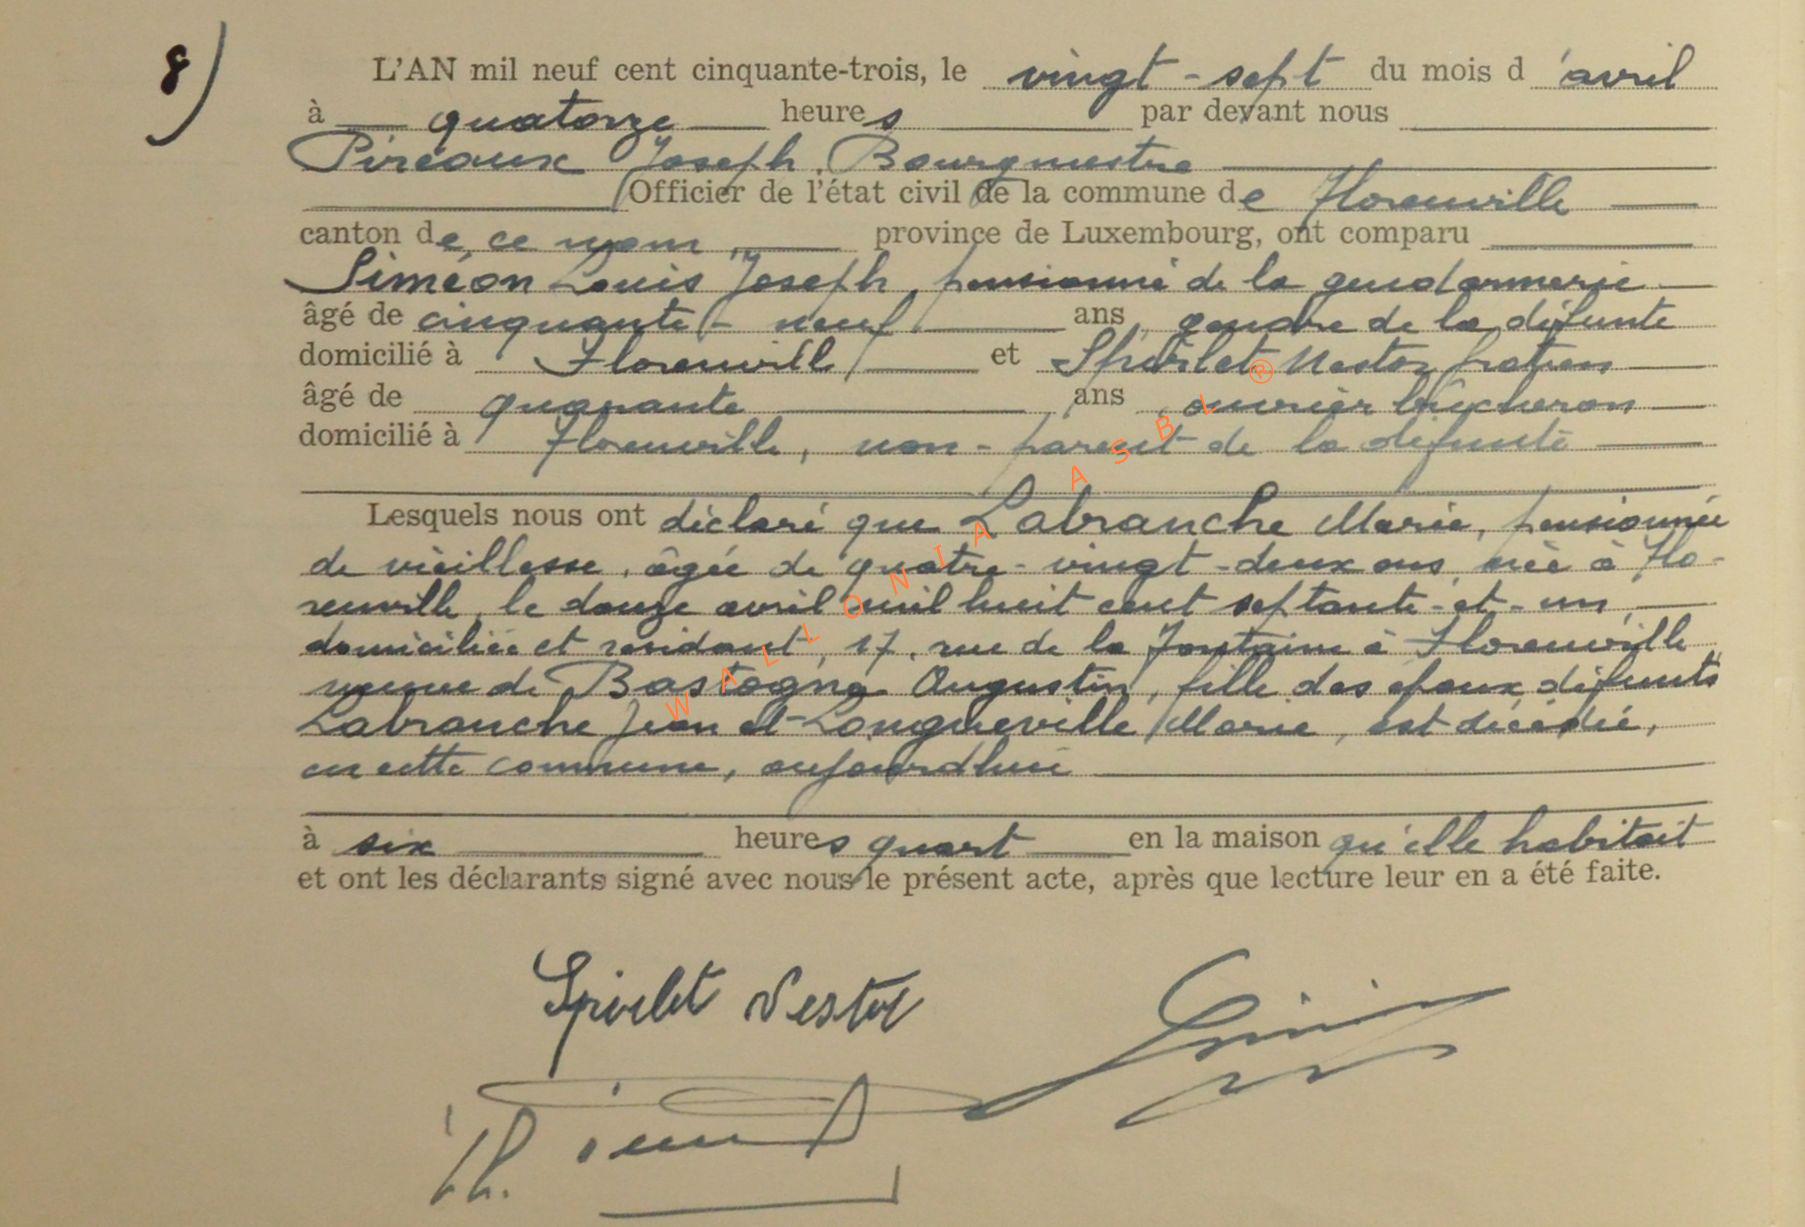 8)
L'AN mil neuf cent cinquante-trois, le vingt-sept du mois d'avril
à quatorze heures par devant nous
Piréaux Joseph, Bourgmestre
Officier de l'état civil de la commune de Florenville
canton de ce nom, province de Luxembourg, ont comparu
Siméon Louis Joseph, pensionné de la gendarmerie
âgé de cinquante-neuf ans, gendre de la défunte
domicilié à Florenville et Spirlet Nestor
âgé de quarante ans, ouvrier bûcheron
domicilié à Florenville, non-parent de la défunte
Lesquels nous ont déclaré que Labranche Marie, pensionnée
de vieillesse, âgée de quatre-vingt-deux ans, née à Flo-
renville, le douze avril mil huit cent septante-et-un,
domiciliée et résidant, 17, rue de la Fontaine à Florenville,
veuve de Bastogne Augustin, fille des époux défunts
Labranche Jean et Longueville Marie, est décédée,
en cette commune, aujourdhui
à six heures quart en la maison qu'elle habitait
et ont les déclarants signé avec nous le présent acte, après que lecture leur en a été faite.
Spirlet Nestor
WALLONIA ASBL ®